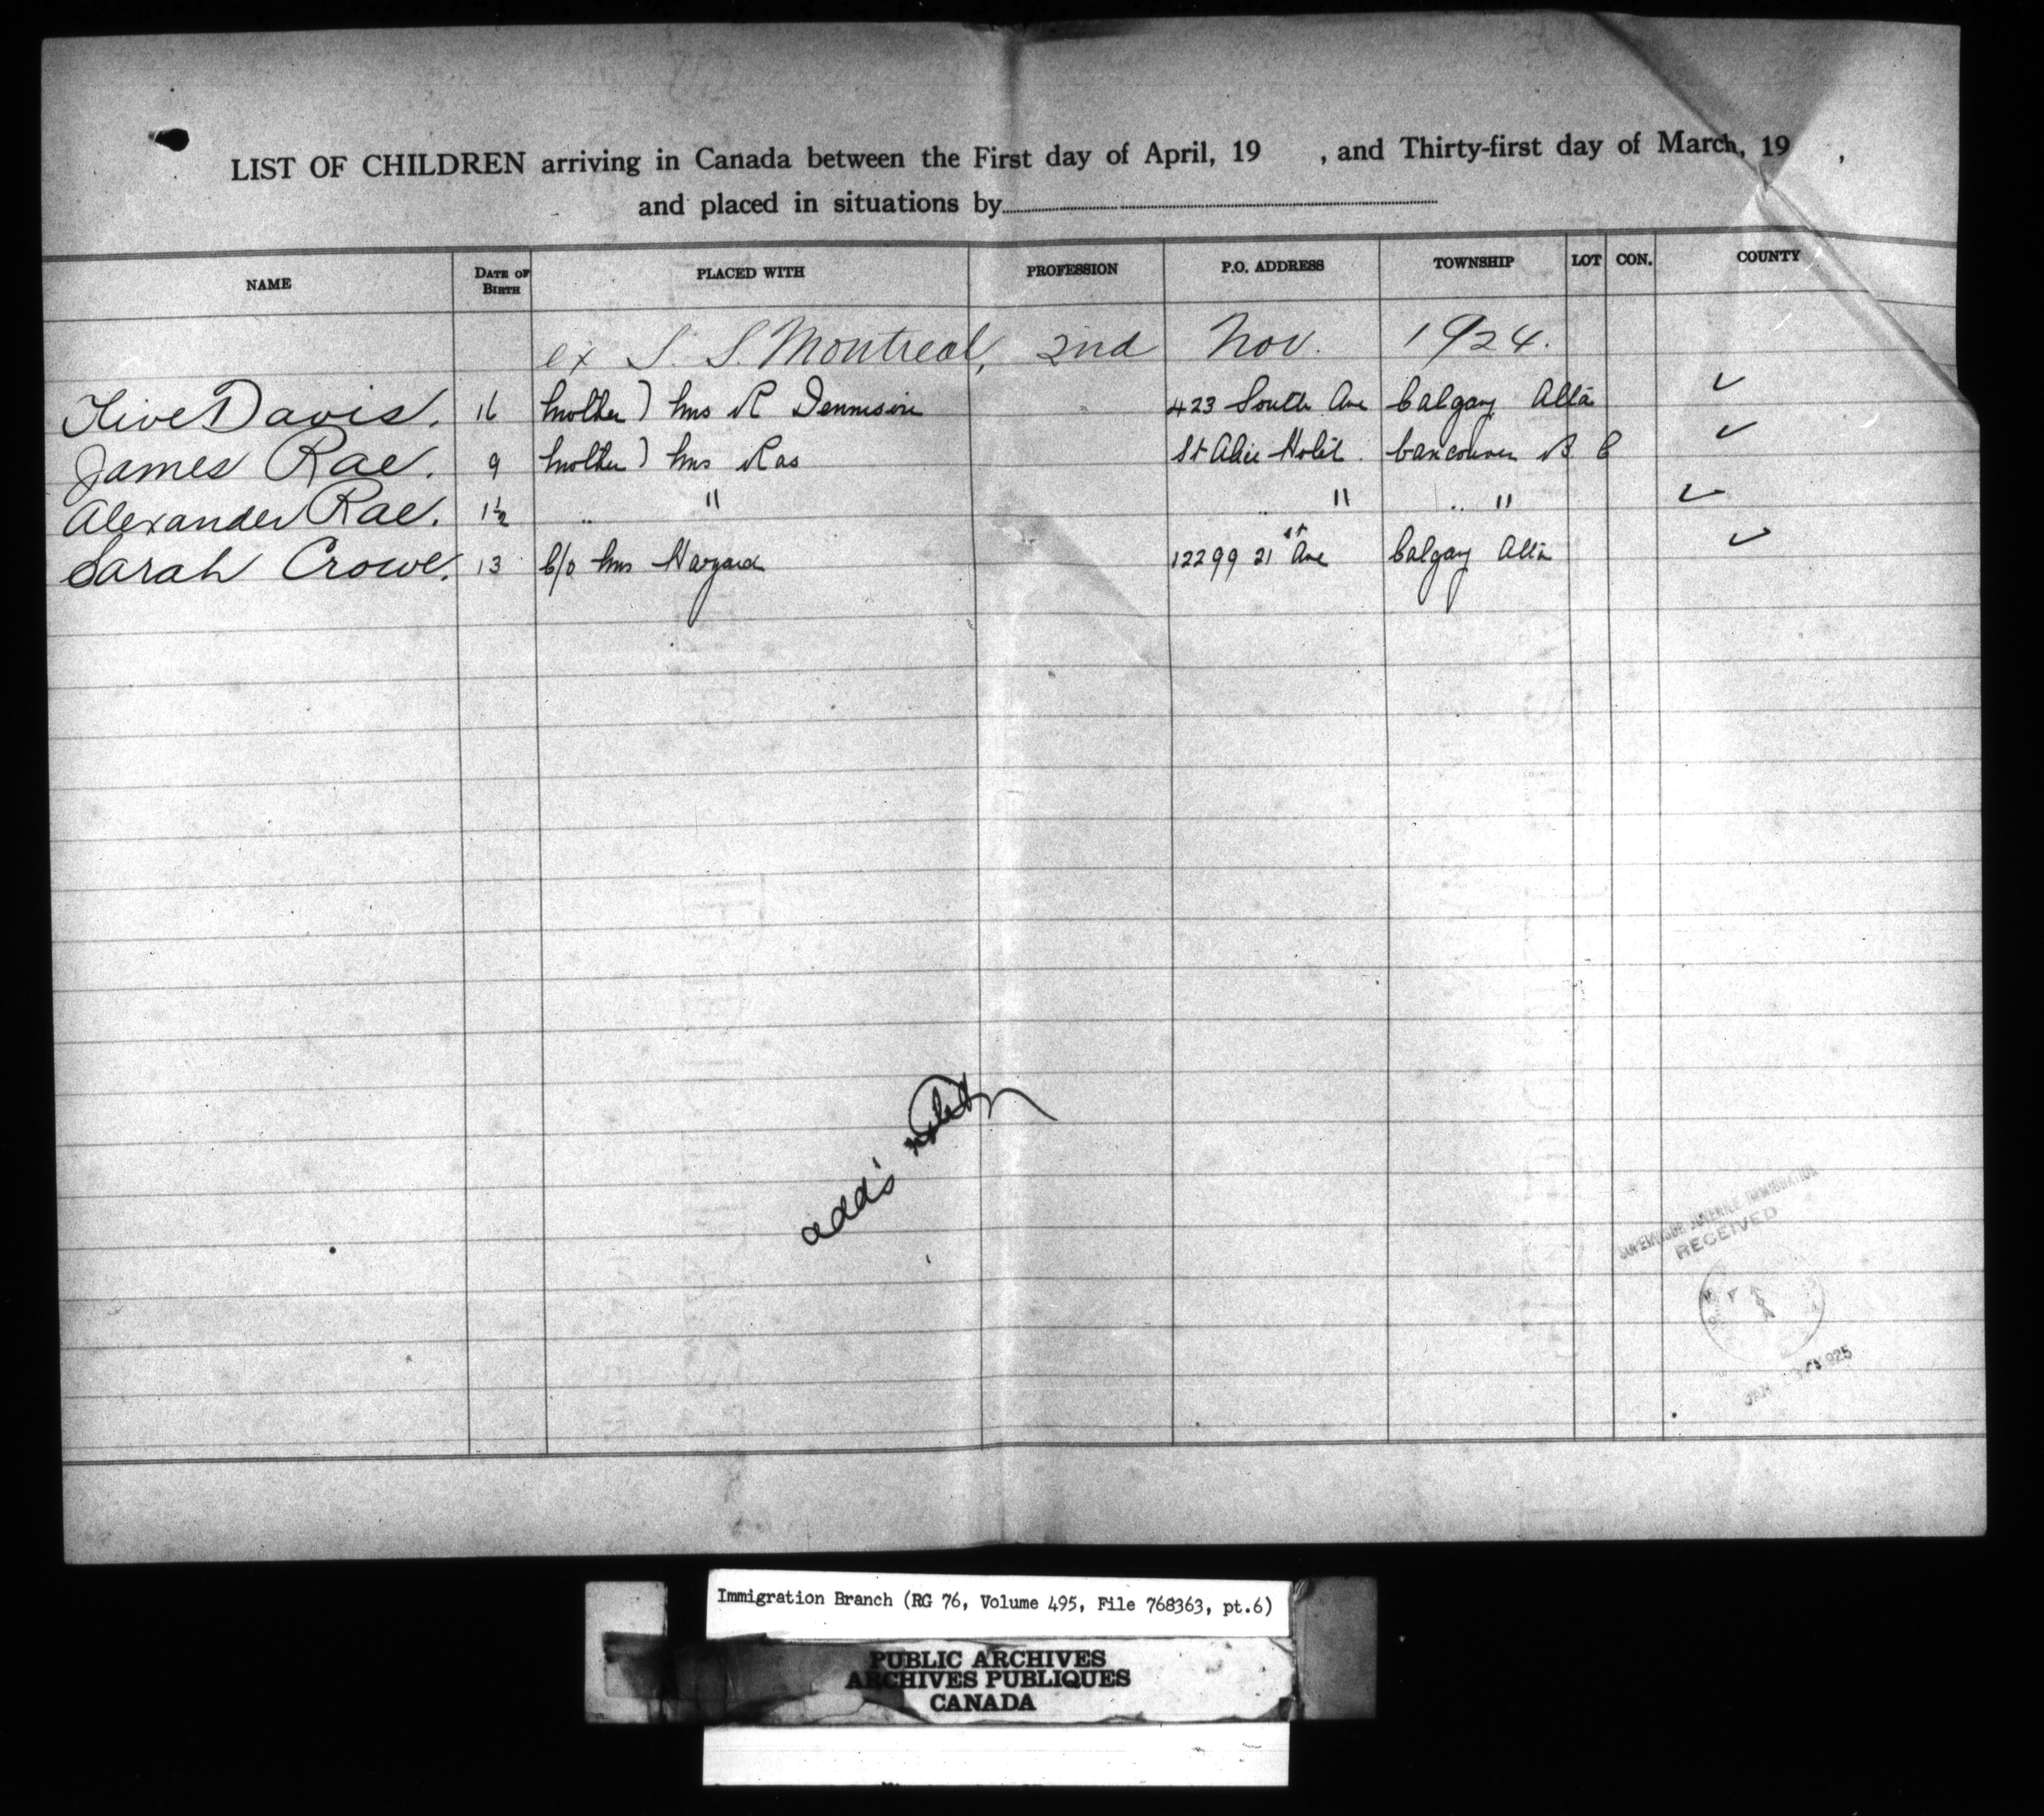 LIST OF CHILDREN arriving in Canada between the First day of April, 19 , and Thirty-first day of March, 19 ,
and placed in situations by
NAME DATE OF BIRTH PLACED WITH PROFESSION P.O. ADDRESS TOWNSHIP LOT CON. COUNTY
ex S. S. Montreal, 2nd Nov. 1924.
Davis. 16 Mother) Mrs R Dennison 423 South Ave Calgary Alta ✓
James Rae. 9 Mother) Mrs Rae St Alice Hotel Vancouver B C ✓
Alexander Rae. 1½ " " " " " " ✓
Sarah Crowe. 13 C/o Mrs 12299 21st Ave Calgary Alta ✓
add's
SUPERVISOR JUVENILE IMMIGRATION
RECEIVED
JAN 1925
Immigration Branch (RG 76, Volume 495, File 768363, pt.6)
PUBLIC ARCHIVES
ARCHIVES PUBLIQUES
CANADA